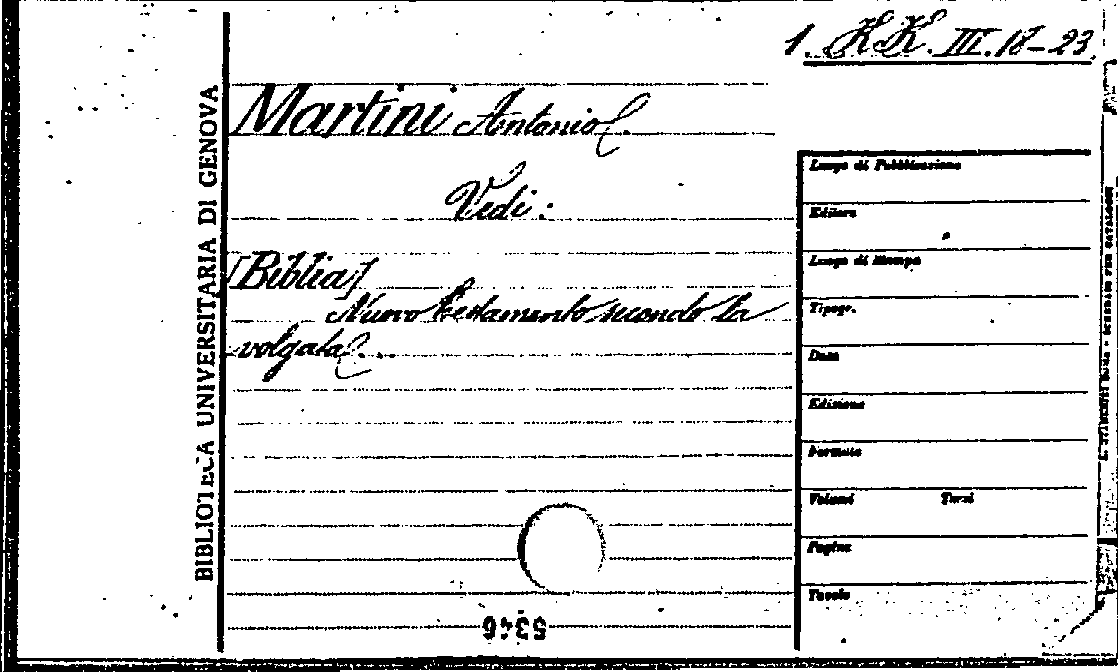 1. KK. III. 18-23
Martini Antonio.
Vedi:
[Biblia]
Nuovo testamento secondo la
volgata...
BIBLIOTECA UNIVERSITARIA DI GENOVA
Luogo di Pubblicazione
Editore
Luogo di Stampa
Tipogr.
Data
Edizione
Formato
Volumi Tomi
Pagine
Tavole
5346